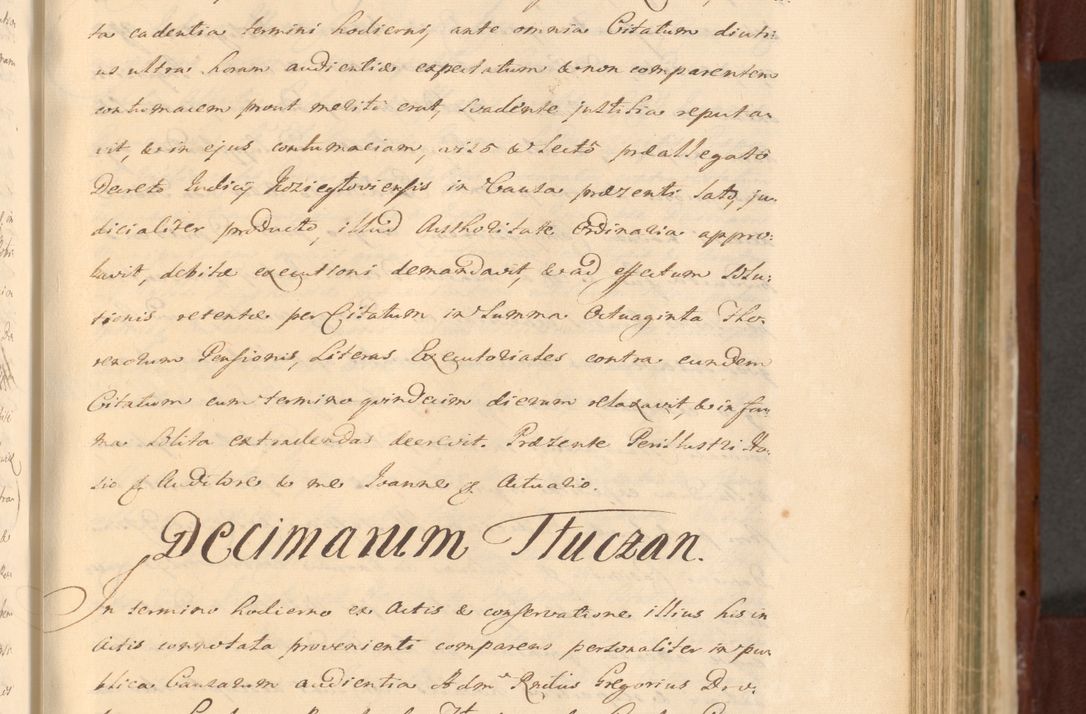 ta cadentia termini hodierni, ante omnia Citatum diuti-
us ultra horam audientiæ expectatum & non comparentem
contumacem prout meriti erat, svadente justitia reputa-
vit, & in ejus contumaciam, visô & lectô præallegatô
Decreto Iudicij Koziegłoviensis in Causa præzenti lato, ju-
dicialiter producto, illud Authoritate Ordinaria appro-
bavit, debitæ executioni demandavit, & ad effectum Solu-
tionis retentæ per Citatum in Summa Octuaginta Flo-
renorum Pensionis, Literas Executoriales contra eundem
Citatum cum termino quindecim dierum relaxavit & in for-
ma solita extradendas decrevit. Præzente Perillustri Ho-
sio Auditore & me Ioanne Actuario.
Decimarum Tłuczan.
In termino hodierno ex Actis & conservatione illius his in
Actis connotata provenienti comparens personaliter in pu-
blica Causarum audientia Adm. Rndus Gregorius Dro-